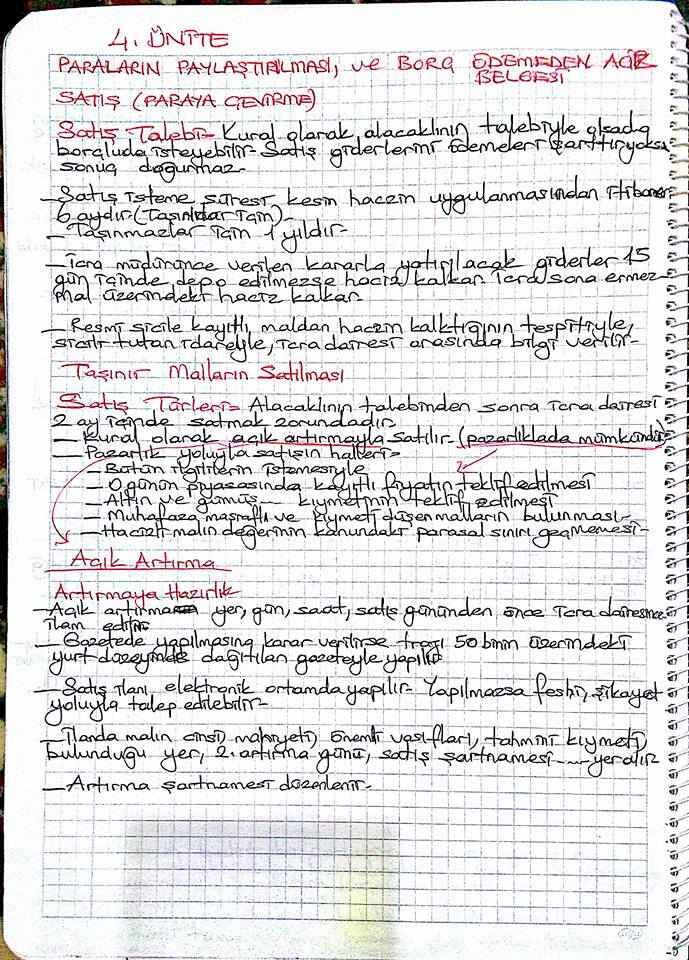 4. ÜNİTE
PARALARIN PAYLAŞTIRILMASI, ve BORÇ ÖDEMEDEN ACİZ
BELGESİ
SATIŞ (PARAYA ÇEVİRME)
Satış Talebi- Kural olarak alacaklının talebiyle olsada
borçluda isteyebilir- Satış giderlerini ödemeleri şarttır yoksa
sonuç doğurmaz-
- Satış isteme süresi kesin haczin uygulanmasından itibaren
6 aydır (Taşınırlar için)-
- Taşınmazlar için 1 yıldır-
- İcra müdürünce verilen kararla yatırılacak giderler 15
gün içinde depo edilmezse haciz kalkar icra sona ermez
mal üzerindeki haciz kalkar-
- Resmi sicile kayıtlı, maldan haczin kalktığının tespitiyle,
sicili tutan idareyle, icra dairesi arasında bilgi verilir-
Taşınır Malların Satılması
Satış Türleri= Alacaklının talebinden sonra icra dairesi
2 ay içinde satmak zorundadır
- Kural olarak açık artırmayla satılır (pazarlıklada mümkündür)
- Pazarlık yoluyla satışın halleri=
- Bütün ilgililerin istemesiyle
- O günün piyasasında kayıtlı fiyatın teklif edilmesi
- Altın ve gümüş--- kıymetinin teklif edilmesi
- Muhafaza masraflı ve kıymeti düşen malların bulunması-
- Hacizli malın değerinin kanundaki parasal sınırı geçmemesi-
Açık Artırma
Artırmaya Hazırlık
- Açık artırma yer, gün, saat, satış gününden önce icra dairesince
ilam edilir
- Gazetede yapılmasına karar verilirse tirajı 50 binin üzerindeki
yurt düzeyinde dağıtılan gazeteyle yapılır
- Satış ilanı elektronik ortamda yapılır- Yapılmazsa feshi, şikayet
yoluyla talep edilebilir-
- İlanda malın cinsi, mahiyeti, önemli vasıfları, tahmini kıymeti,
bulunduğu yer, 2. artırma günü, satış şartnamesi---- yer alır
- Artırma şartnamesi düzenlenir-